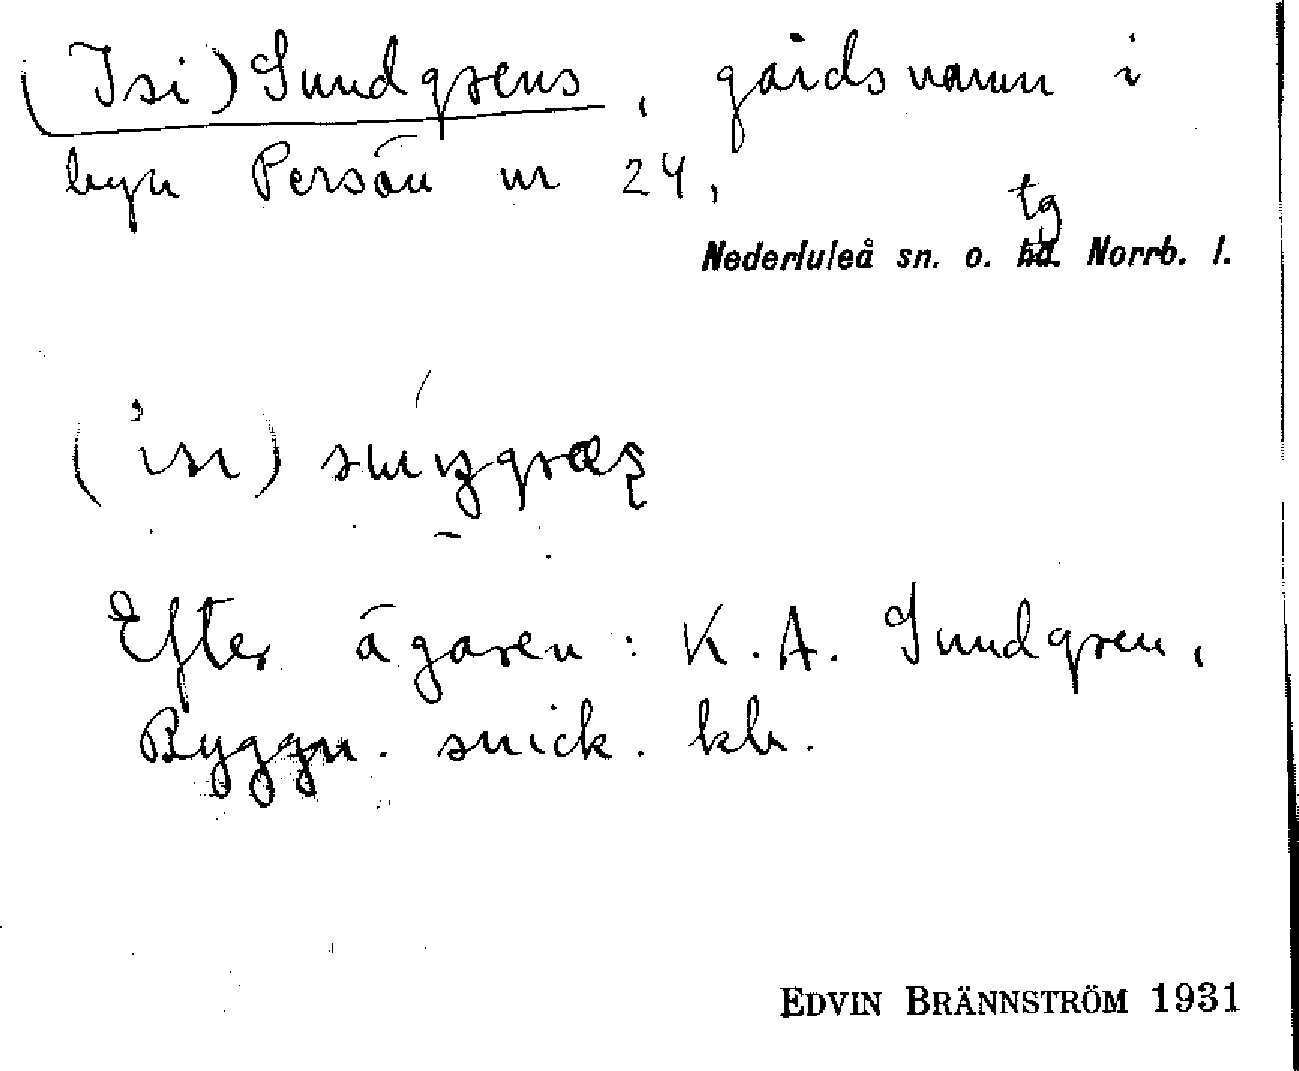 (Isi) Sundgrens, gårdsnamn i
byn Persön nr 24,
tg
Nederluleå sn. o. hd. Norrb. l.
Efter ägaren: K. A. Sundgren,
Byggn. snick. kla.
EDVIN BRÄNNSTRÖM 1931